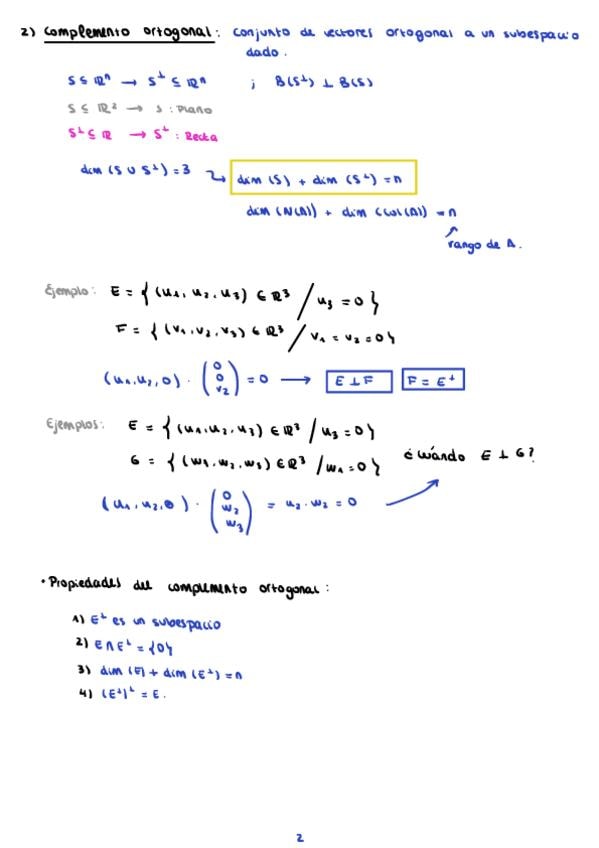 2) Complemento ortogonal: conjunto de vectores ortogonal a un subespacio
dado.
S ⊆ ℝⁿ → S^⊥ ⊆ ℝⁿ ; B(S^⊥) ⊥ B(S)
S ⊆ ℝ² → S: Plano
S^⊥ ⊆ ℝ → S^⊥: Recta
dim (S ∪ S^⊥) = 3 dim (S) + dim (S^⊥) = n
dim (N(A)) + dim (Col(A)) = n
rango de A.
Ejemplo: E = { (u₁, u₂, u₃) ∈ ℝ³ / u₃ = 0 }
F = { (v₁, v₂, v₃) ∈ ℝ³ / v₁ = v₂ = 0 }
(u₁, u₂, 0) · (0 0 v₂) = 0 → E ⊥ F F = E^⊥
Ejemplos: E = { (u₁, u₂, u₃) ∈ ℝ³ / u₃ = 0 }
G = { (w₁, w₂, w₃) ∈ ℝ³ / w₁ = 0 } ¿Cuándo E ⊥ G?
(u₁, u₂, 0) · (0 w₂ w₃) = u₂ · w₂ = 0
• Propiedades del complemento ortogonal:
1) E^⊥ es un subespacio
2) E ∩ E^⊥ = {0}
3) dim (E) + dim (E^⊥) = n
4) (E^⊥)^⊥ = E.
2